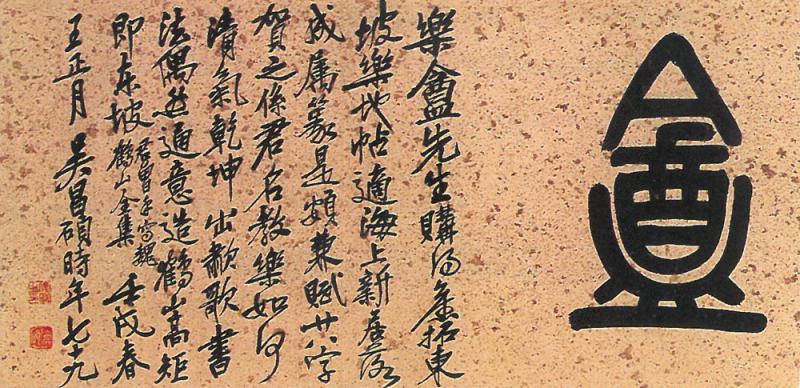 盦
樂盦先生購得舊拓東
坡樂地帖適海上新居落
成屬篆是額兼賦廿八字
賀之係君名教樂如何
清氣乾坤出歗歌書
法偶然通意造鶴山高矩
即東坡
君曾手寫魏
鶴山全集
壬戌春
王正月 吳昌碩時年七十九